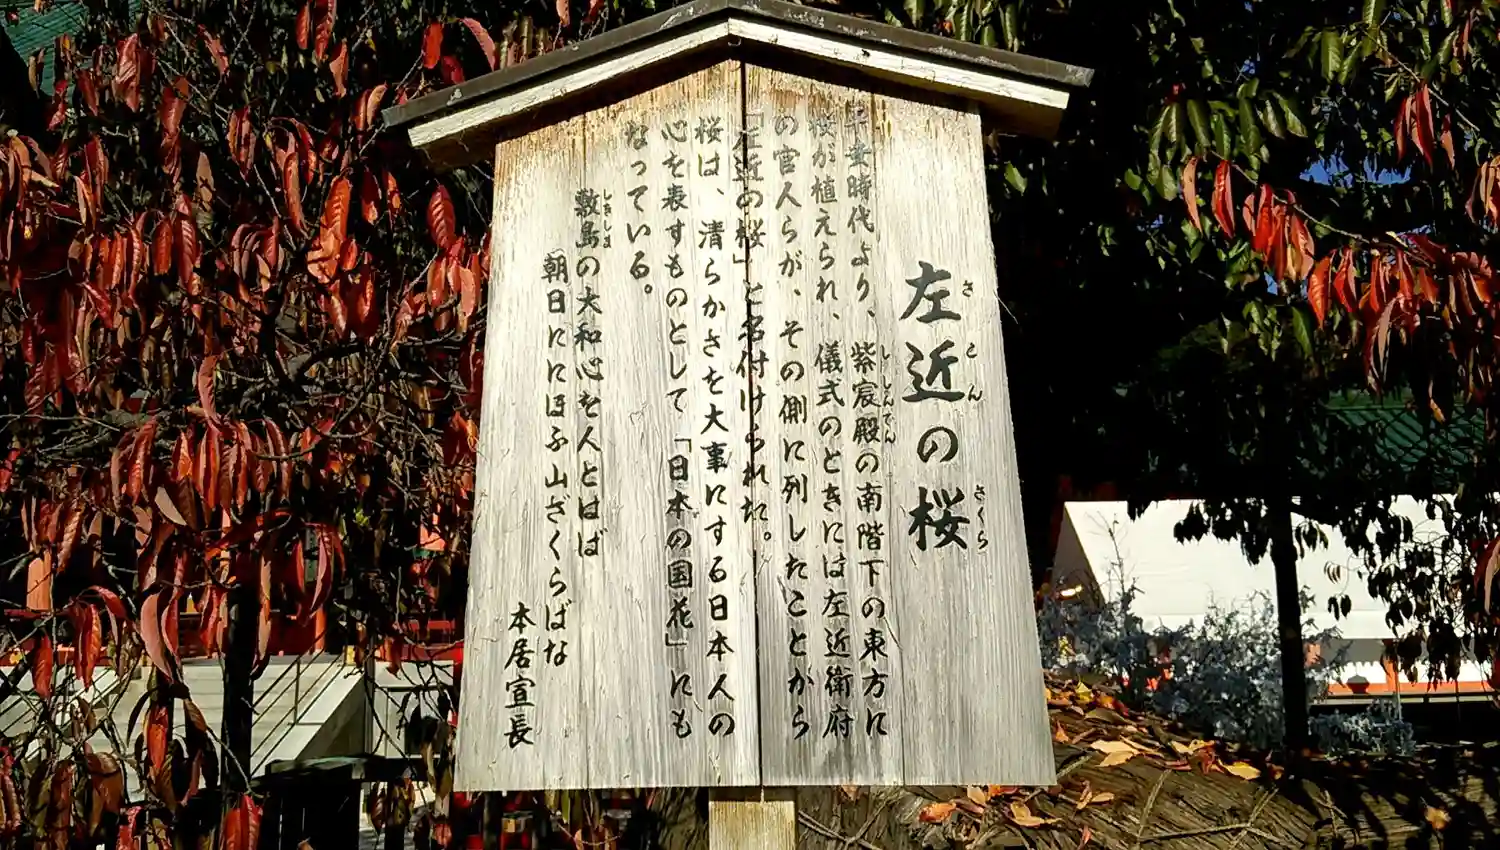 左近の桜
さこん
さくら
平安時代より、紫宸殿の南階下の東方に
ししんでん
桜が植えられ、儀式のときには左近衛府
の官人らが、その側に列したことから
「左近の桜」と名付けられた。
桜は、清らかさを大事にする日本人の
心を表すものとして「日本の国花」にも
なっている。
敷島の大和心を人とはば
しきしま
朝日ににほふ山ざくらばな
本居宣長